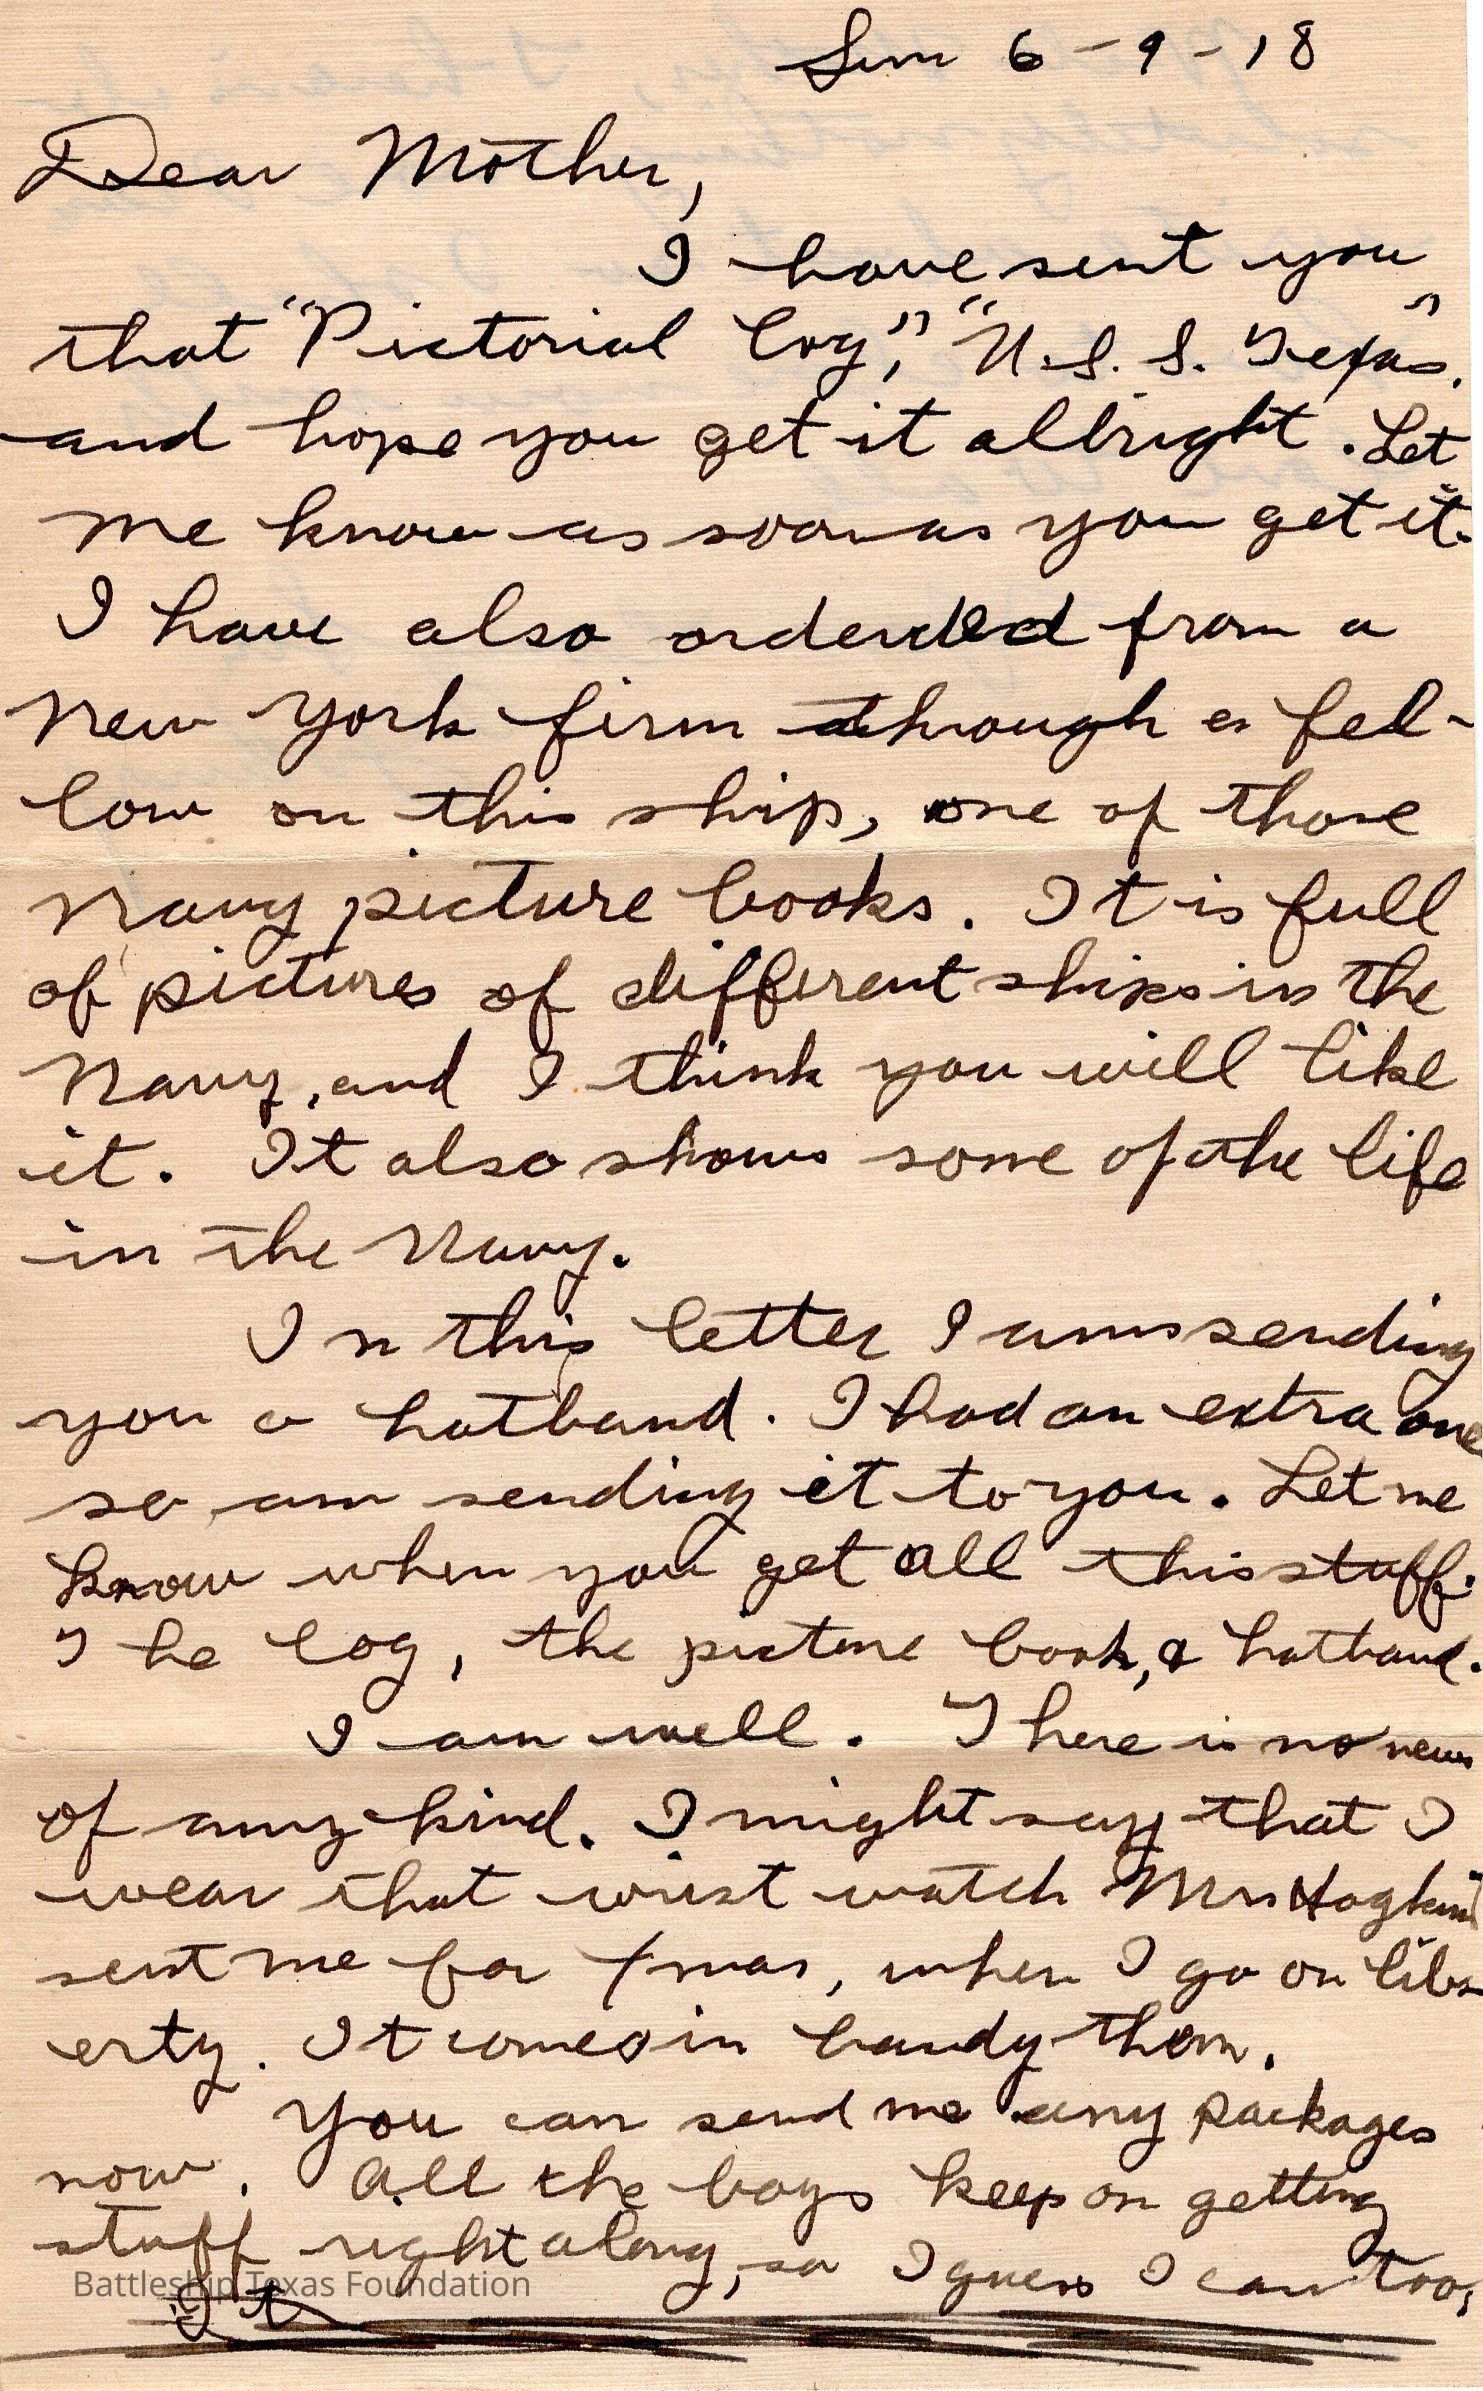 Sun 6-9-18
Dear Mother,
I have sent you
that "Pictorial Log", "U.S.S. Texas",
and hope you get it allright. Let
me know as soon as you get it.
I have also orderded from a
New York firm through a fel-
low on this ship, one of those
Navy picture books. It is full
of pictures of different ships in the
Navy, and I think you will like
it. It also shows some of the life
in the Navy.
In this letter I am sending
you a hatband. I had an extra one
so am sending it to you. Let me
know when you get all this stuff.
The log, the picture book, & hatband.
I am well. There is no news
of any kind. I might say that I
wear that wrist watch Mrs
sent me for Xmas, when I go on lib-
erty. It comes in handy then.
You can send me any packages
now. All the boys keep on getting
stuff right along, so I guess I can too,
Battleship Texas Foundation
It